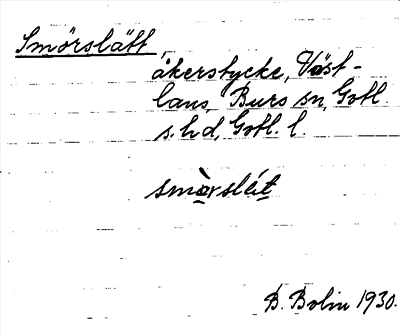 Smörslätt,
åkerstycke, Väst-
laus, Burs sn, Gotl.
s. hd, Gotl. l.
smòrsléit
B. Bolin 1930.